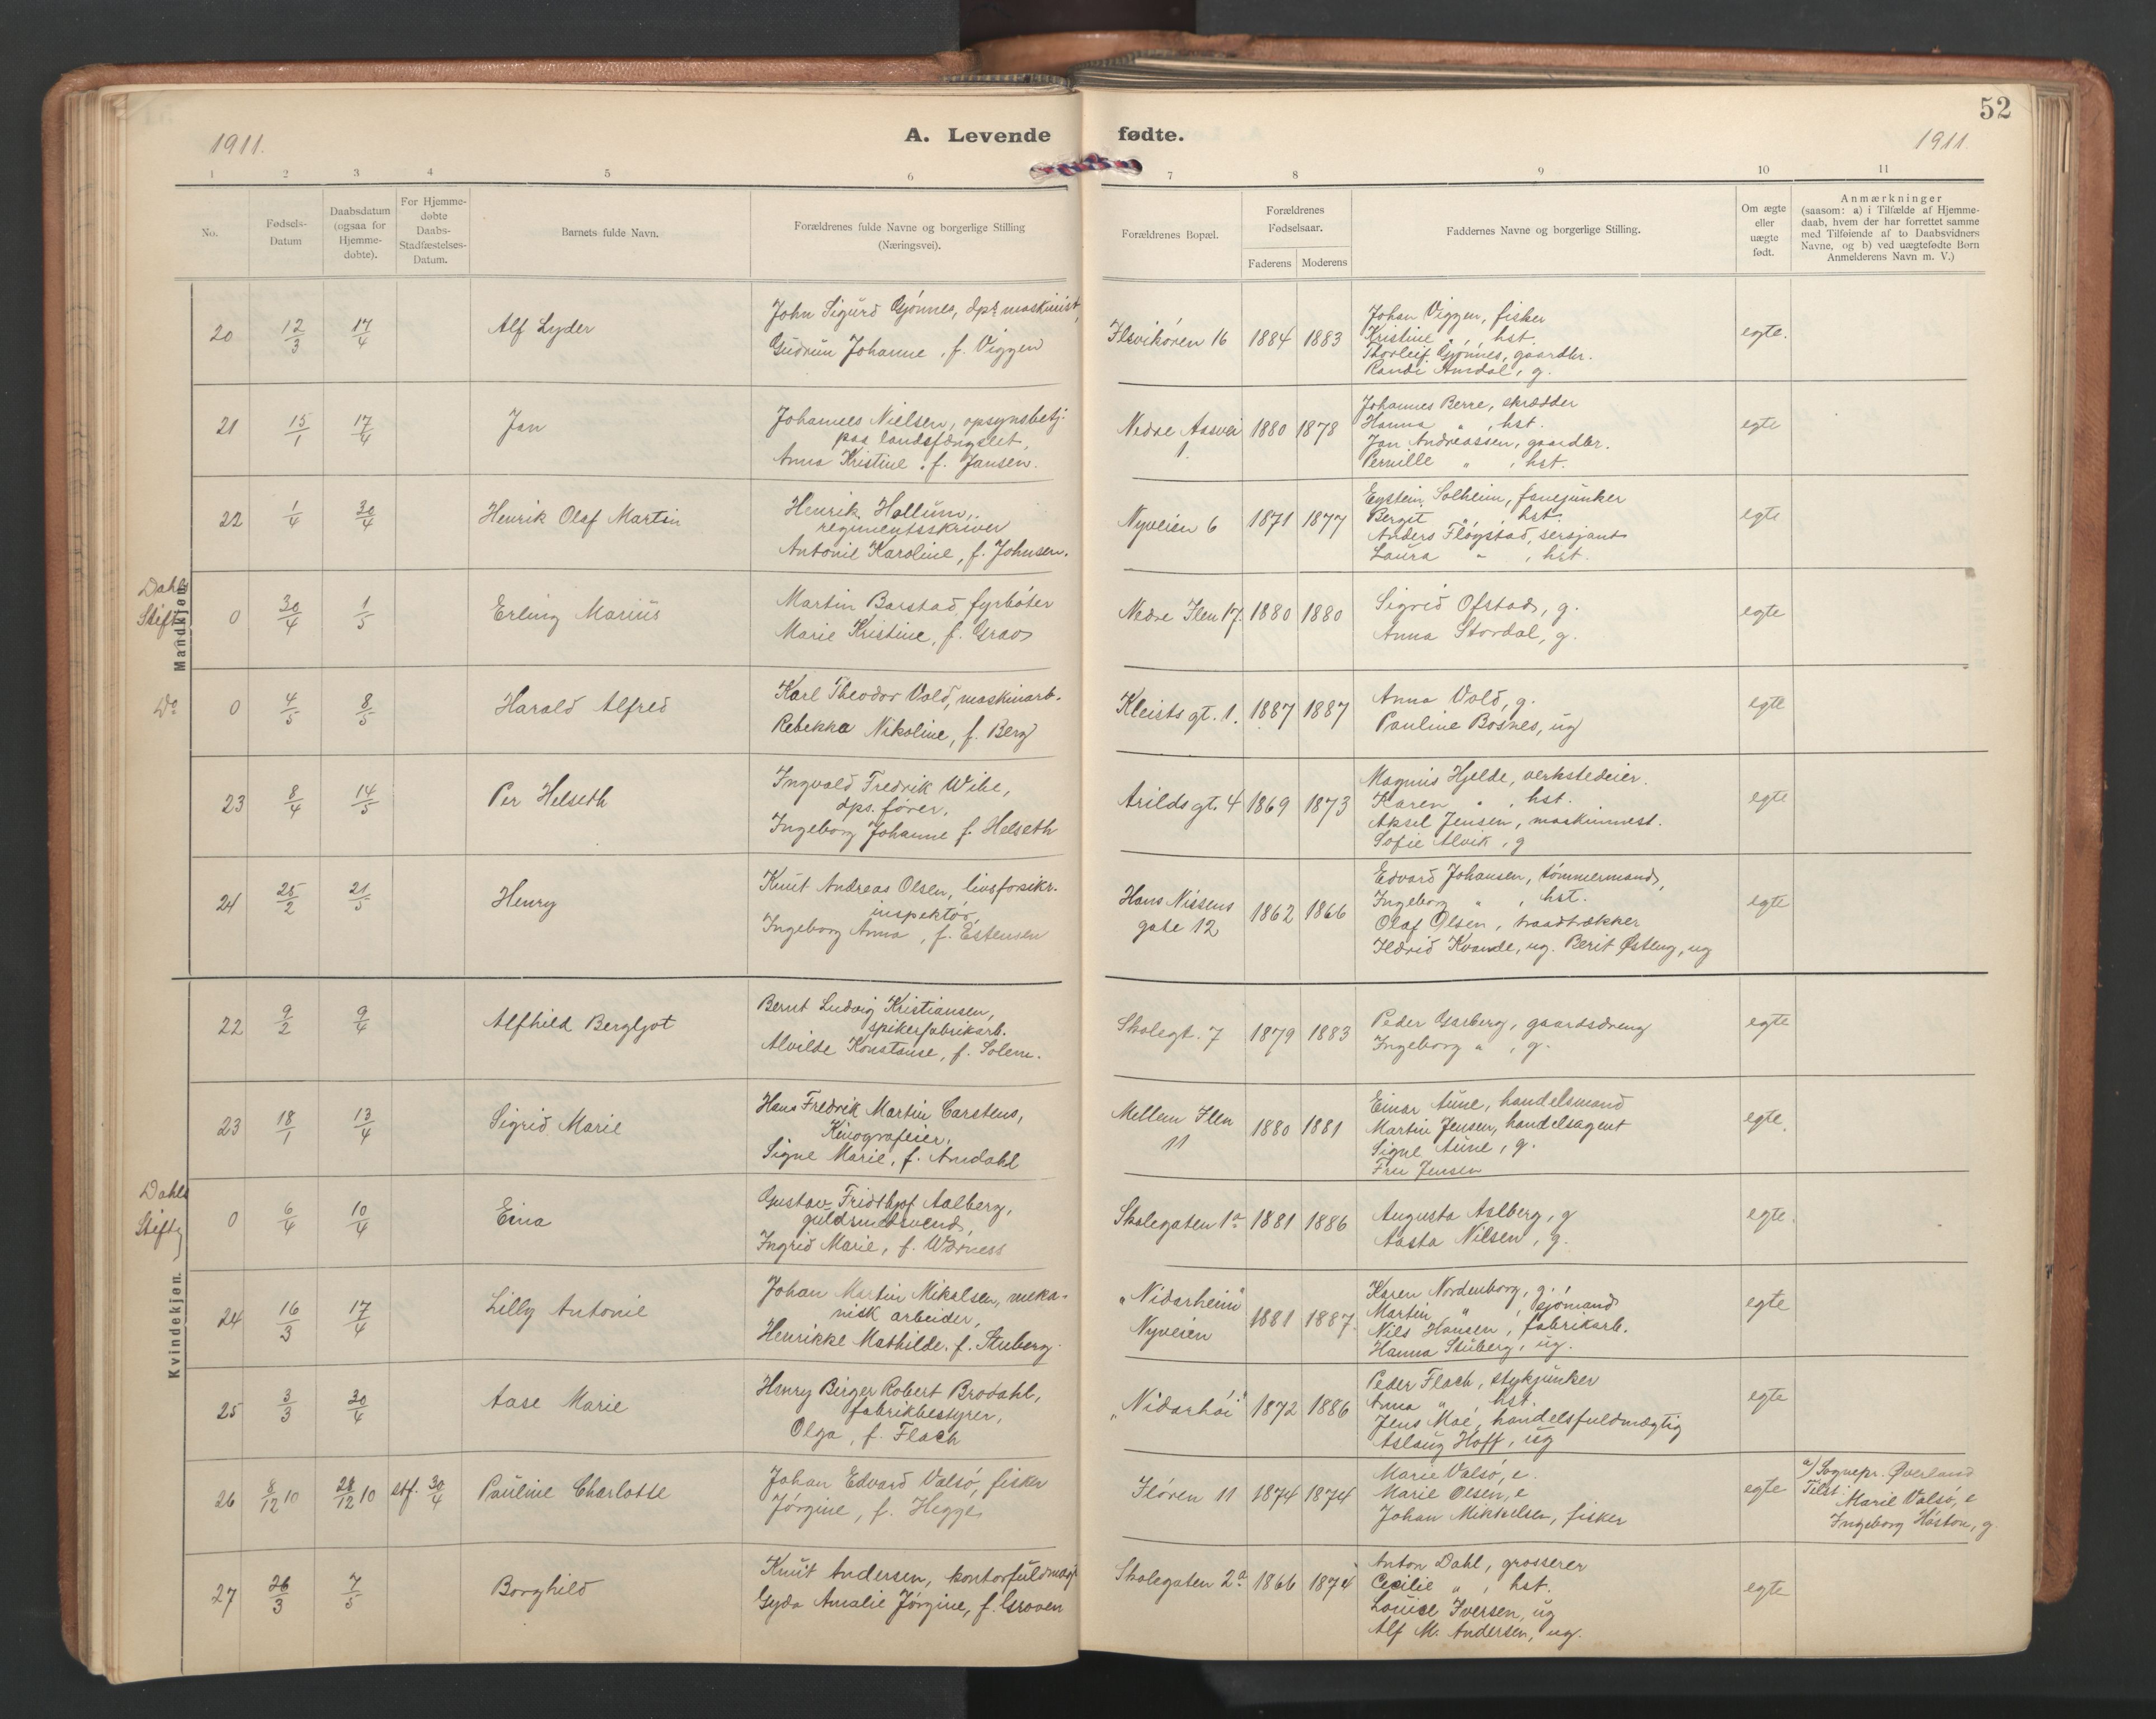 52
1911.
A. Levende fødte.
1911.
1 2 3 4 5 6 7 8 9 10 11
No.
Fødsels-
Datum
Daabsdatum
(ogsaa for
Hjemme-
døbte).
For Hjemme-
døbte
Daabs-
Stadfæstelses-
Datum.
Barnets fulde Navn.
Forældrenes fulde Navne og borgerlige Stilling
(Næringsvei).
Forældrenes Bopæl.
Forældrenes
Fødselsaar.
Faderens Moderens
Faddernes Navne og borgerlige Stilling.
Om ægte
eller
uægte
født.
Anmærkninger
(saasom: a) i Tilfælde af Hjemme-
daab, hvem der har forrettet samme
med Tilføiende af to Daabsvidners
Navne, og b) ved uægtefødte Børn
Anmelderens Navn m. V.)
Mandkjøn.
20 12/3 17/4 Alf Lyder
John Sigurd Gjønnes, dpsk maskinist,
Gudrun Johanne, f. Viggen
Ilsvikøren 16 1884 1883
Johan Viggen, fisker
Kristine " , hst.
Thorleif Gjønnes, gaardbr.
Randi Amdal, g.
egte.
21 15/1 17/4 Jan
Johannes Nielsen, opsynsbetj.
paa landsfængslet,
Anna Kristine, f. Jansen.
Nedre Aasvei
1. 1880 1878
Johannes Berre, skrædder
Hanna " , hst.
Jan Andreassen, gaardbr.
Pernille " , hst.
egte
22 1/4 30/4 Henrik Olaf Martin
Henrik Hollum,
regimentsskriver
Antonie Karoline, f. Johnsen.
Nyveien 6 1871 1877
Eystein Solheim, fanejunker
Bergit " , hst.
Anders Fløgstad, sersjant
Laura " , hst.
egte
Dahls
Stift.
0 30/4 1/5 Erling Marius
Martin Barstad, fyrbøter
Marie Kristine, f. Graas
Nedre Ilen 17. 1880 1880
Sigrid Ofstad, g.
Anna Stordal, g.
egte
Do
0 4/5 8/5 Harald Alfred
Karl Theodor Vold, maskinarb.
Rebekka Nikoline, f. Berg
Kleists gt. 1. 1887 1887
Anna Vold, g.
Pauline Bosnes, ug
egte
23 8/4 14/5 Per Helseth
Ingvald Fredrik Wibe,
dps. fører,
Ingeborg Johanne f. Helseth
Arilds gt. 4 1869 1873
Magnus Hjelde, verkstedeier.
Karen " , hst.
Aksel Jensen, maskinmest.
Sofie Alvik, g
egte
24 25/2 21/5 Henry
Knut Andreas Olsen, livsforsikr.
inspektør,
Ingeborg Anna, f. Estensen
Hans Nissens
gate 12 1862 1866
Edvard Johansen, tømmermand,
Ingeborg " , hst.
Olaf Olsen, traadtrækker
Ildrid Kvande, ug. Berit Østeng, ug
egte
Kvindekjøn.
22 9/2 9/4 Alfhild Bergljot
Bernt Ludvig Kristiansen,
spikerfabrikarb.
Alvilde Konstanse, f. Solem.
Skolegt. 7 1879 1883
Peder Garberg, gaardsdreng
Ingeborg " , g.
egte
23 18/1 13/4 Sigrid Marie
Hans Fredrik Martin Carstens,
Kinografeier,
Signe Marie, f. Amdahl
Mellem Ilen
11 1880 1881
Einar Aune, handelsmand
Martin Jensen, handelsagent
Signe Aune, g.
Fru Jensen
egte.
Dahls
Stift
0 6/4 10/4 Eina
Gustav Fridthjof Aalberg,
guldsmedsvend,
Ingrid Marie, f. Wærness
Skolegaten 1a 1881 1886
Augusta Aalberg, g
Aasta Nilsen, g.
egte.
24 16/3 17/4 Lilly Antonie
Johan Martin Mikalsen, meka-
nisk arbeider,
Henrikke Mathilde, f. Stuberg.
"Nidarheim"
Nyveien 1881 1887.
Karen Nordenborg, g.
Martin " , sjømand
Nils Hansen, fabrikarb.
Hanna Stuberg, ug.
egte
25 3/3 30/4 Aase Marie
Henry Birger Robert Brodahl,
fabrikbestyrer,
Olga, f. Flach
"Nidarhøi" 1872 1886
Peder Flach, stykjunker
Anna " , hst.
Jens Moe, handelsfuldmægtig
Aslaug Hoff, ug
egte
26 8/12 10 28/12 10 stf. 30/4 Pauline Charlotte
Johan Edvard Valsø, fisker
Jørgine, f. Hegge
Iløren 11 1874 1874
Marie Valsø, e.
Marie Olsen, e
Johan Mikkelsen, fisker
egte
a) Sognepr. Øverland
Tilst.:
Marie Valsø, e
Ingeborg Høston, g.
27 26/3 7/5 Borghild
Knut Andersen, kontorfuldmægt
Gyda Amalie Jørgine, f. Groven
Skolegaten 2a 1866 1874
Anton Dahl, grosserer
Cecilie " , hst.
Louise Iversen, ug
Alf M. Andersen, ug.
egte